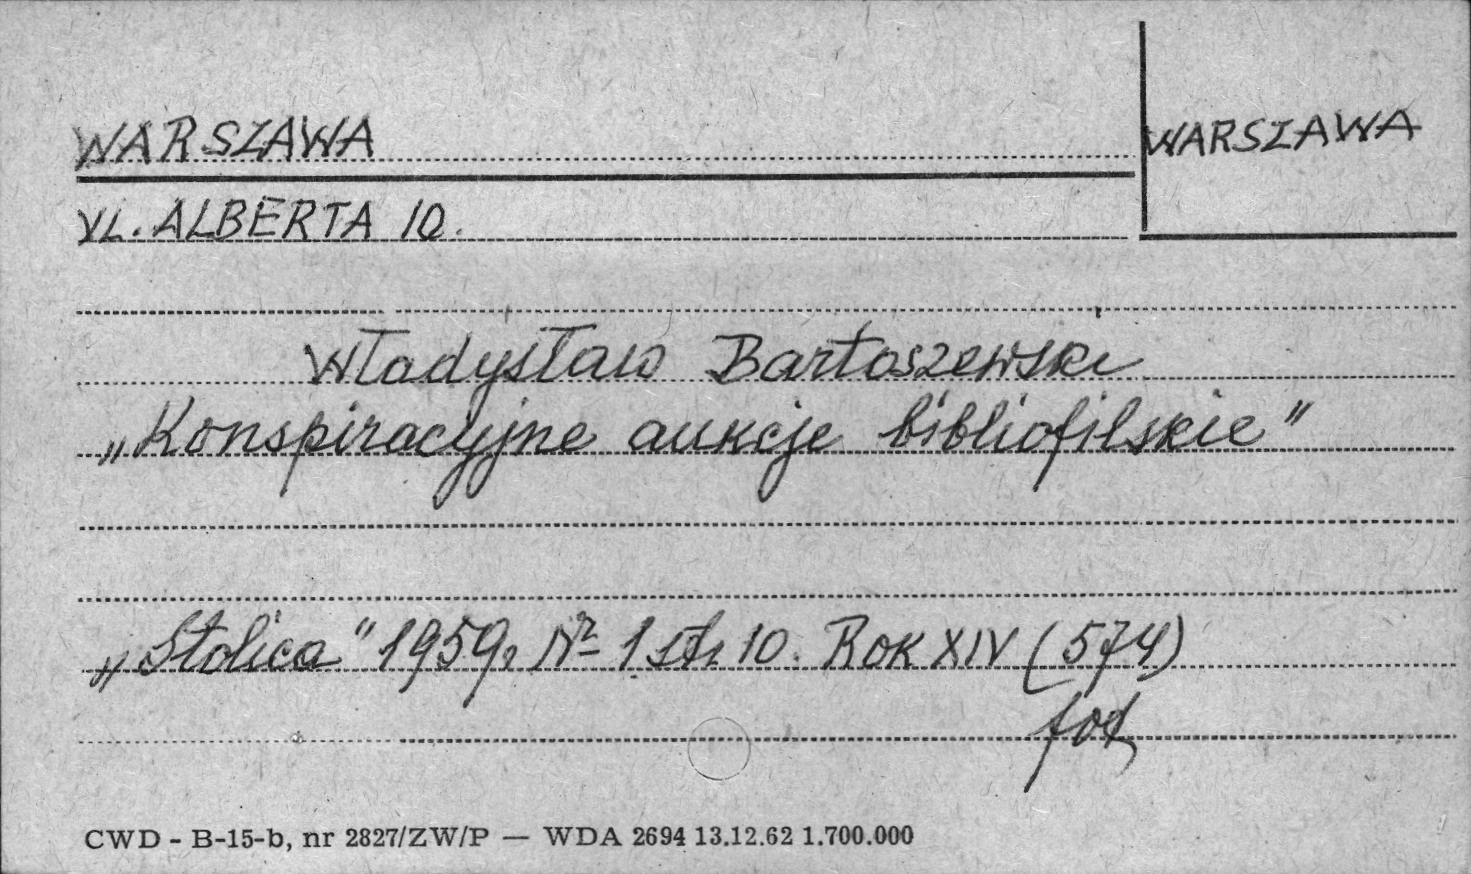 WARSZAWA
WARSZAWA
UL. ALBERTA 10.
Władysław Bartoszewski
„Konspiracyjne aukcje bibliofilskie"
„Stolica" 1959r. Nr 1 str 10. Rok XIV (574)
fot
CWD - B-15-b, nr 2827/ZW/P — WDA 2694 13.12.62 1.700.000